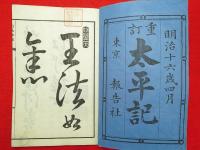 明治十六歳四月
重訂
太平記
東京 報告社
王法如